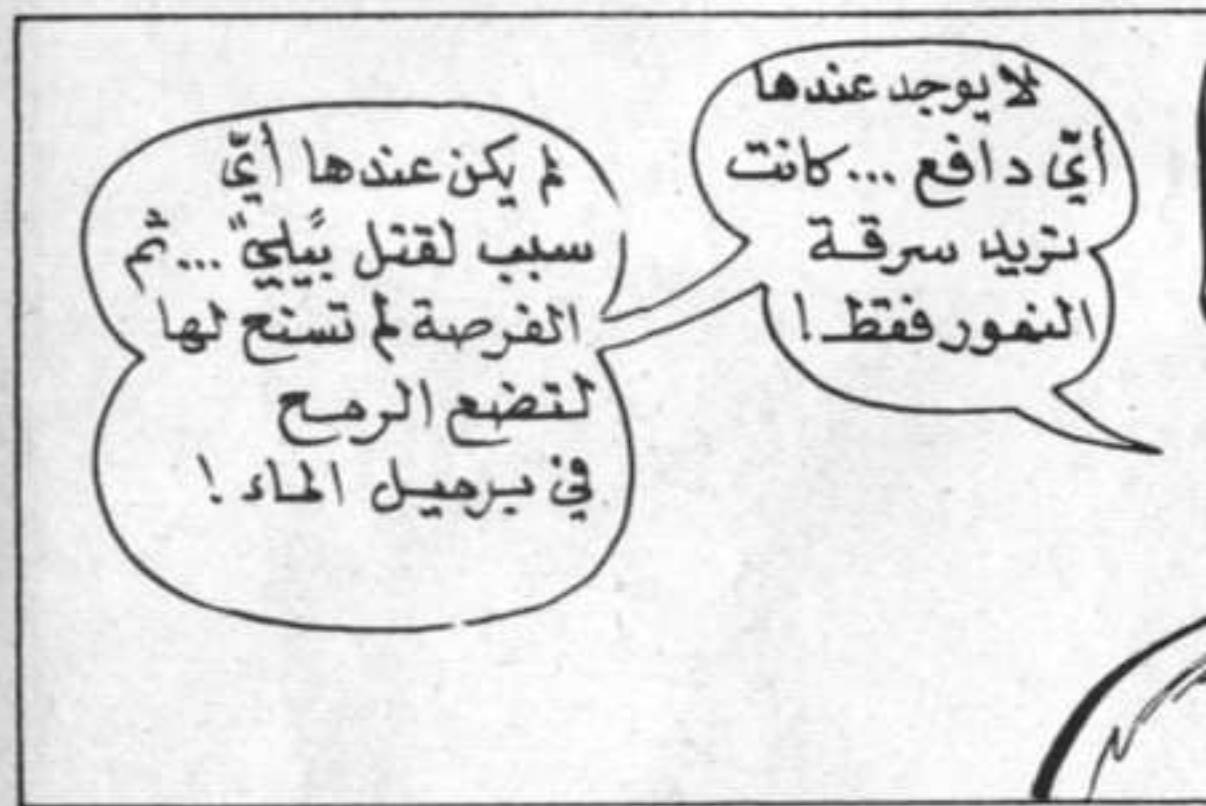 لا يوجد عندها
أيّ دافع ... كانت
تريد سرقة
النمور فقط !
لم يكن عندها أيّ
سبب لقتل "بيلي" ... ثم
الفرصة لم تسنح لها
لتضع الرمح
في برميل الماء !